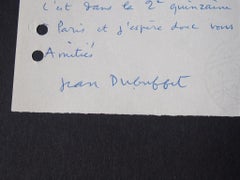 C'est dans la 2e quinzaine
Paris et j'espère donc vous
Amitiés
Jean Dubuffet